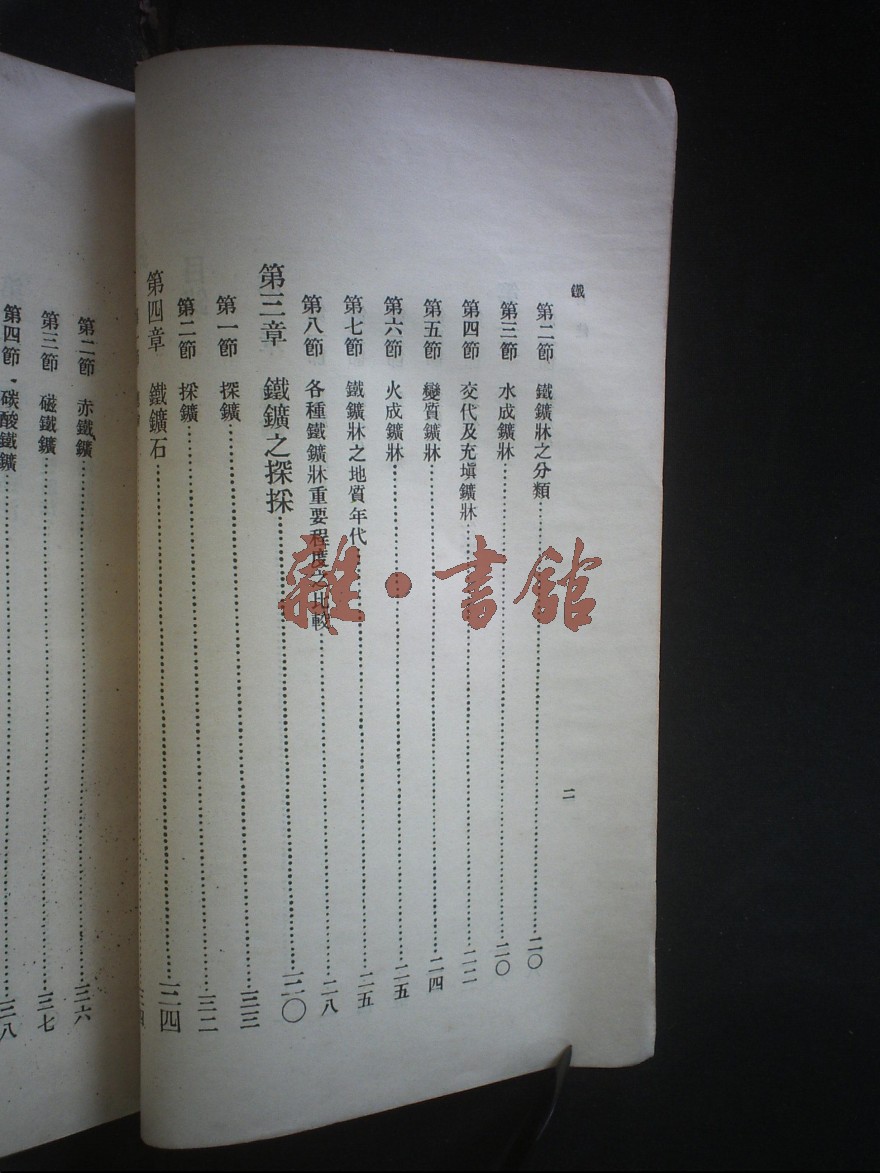 鐵
二
第二節 鐵鑛牀之分類……二〇
第三節 水成鑛牀……二〇
第四節 交代及充塡鑛牀……二二
第五節 變質鑛牀……二四
第六節 火成鑛牀……二五
第七節 鐵鑛牀之地質年代……二五
第八節 各種鐵鑛牀重要程度之比較……二八
第三章 鐵鑛之探採……三〇
第一節 探鑛……三三
第二節 採鑛……三二
第四章 鐵鑛石……三四
第二節 赤鐵鑛……三六
第三節 磁鐵鑛……三七
第四節 碳酸鐵鑛……三八
雜·書館